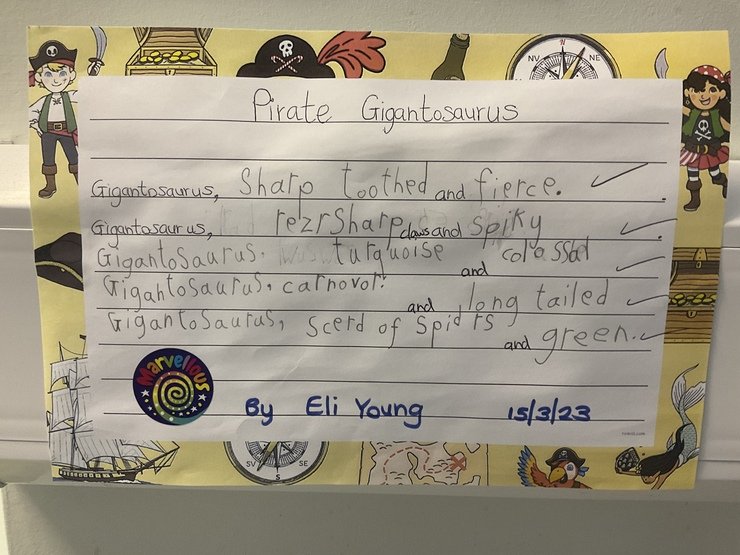 Pirate Gigantosaurus
Gigantosaurus, Sharp toothed and fierce.
Gigantosaurus, rezrSharp claws and Spiky.
Gigantosaurus. turquoise and colossal
Gigantosaurus, carnovor. and long tailed
Gigantosaurus, scerd of Spidrs and green.
Marvellous
By Eli Young 15/3/23
N
NV
NE
SV
S
SE